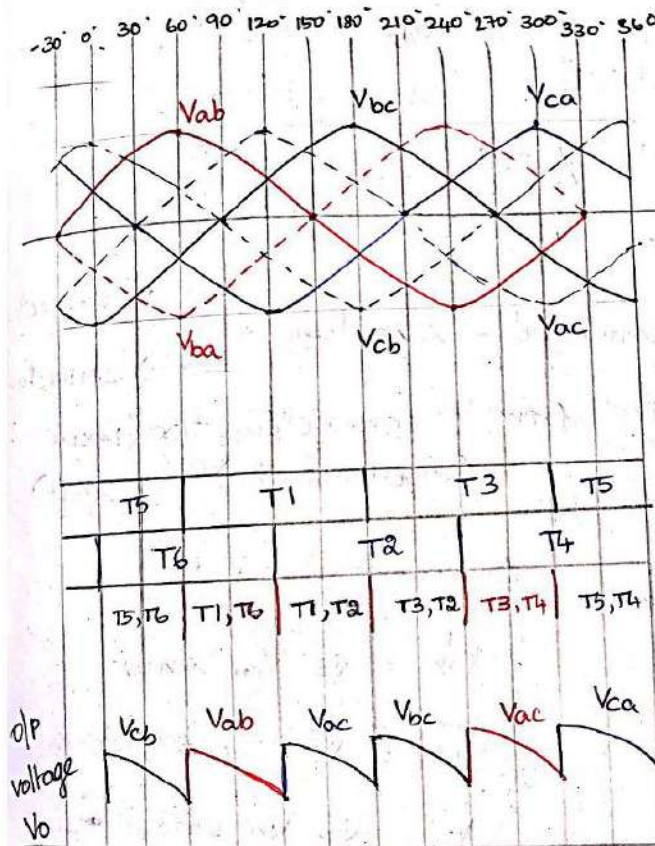 -30° 0° 30° 60° 90° 120° 150° 180° 210° 240° 270° 300° 330° 360
Vab Vbc Vca
Vba Vcb Vac
T5 T1 T3 T5
T6 T2 T4
T5,T6 T1,T6 T1,T2 T3,T2 T3,T4 T5,T4
O/P
voltage
Vo
Vcb Vab Vac Vbc Vac Vca